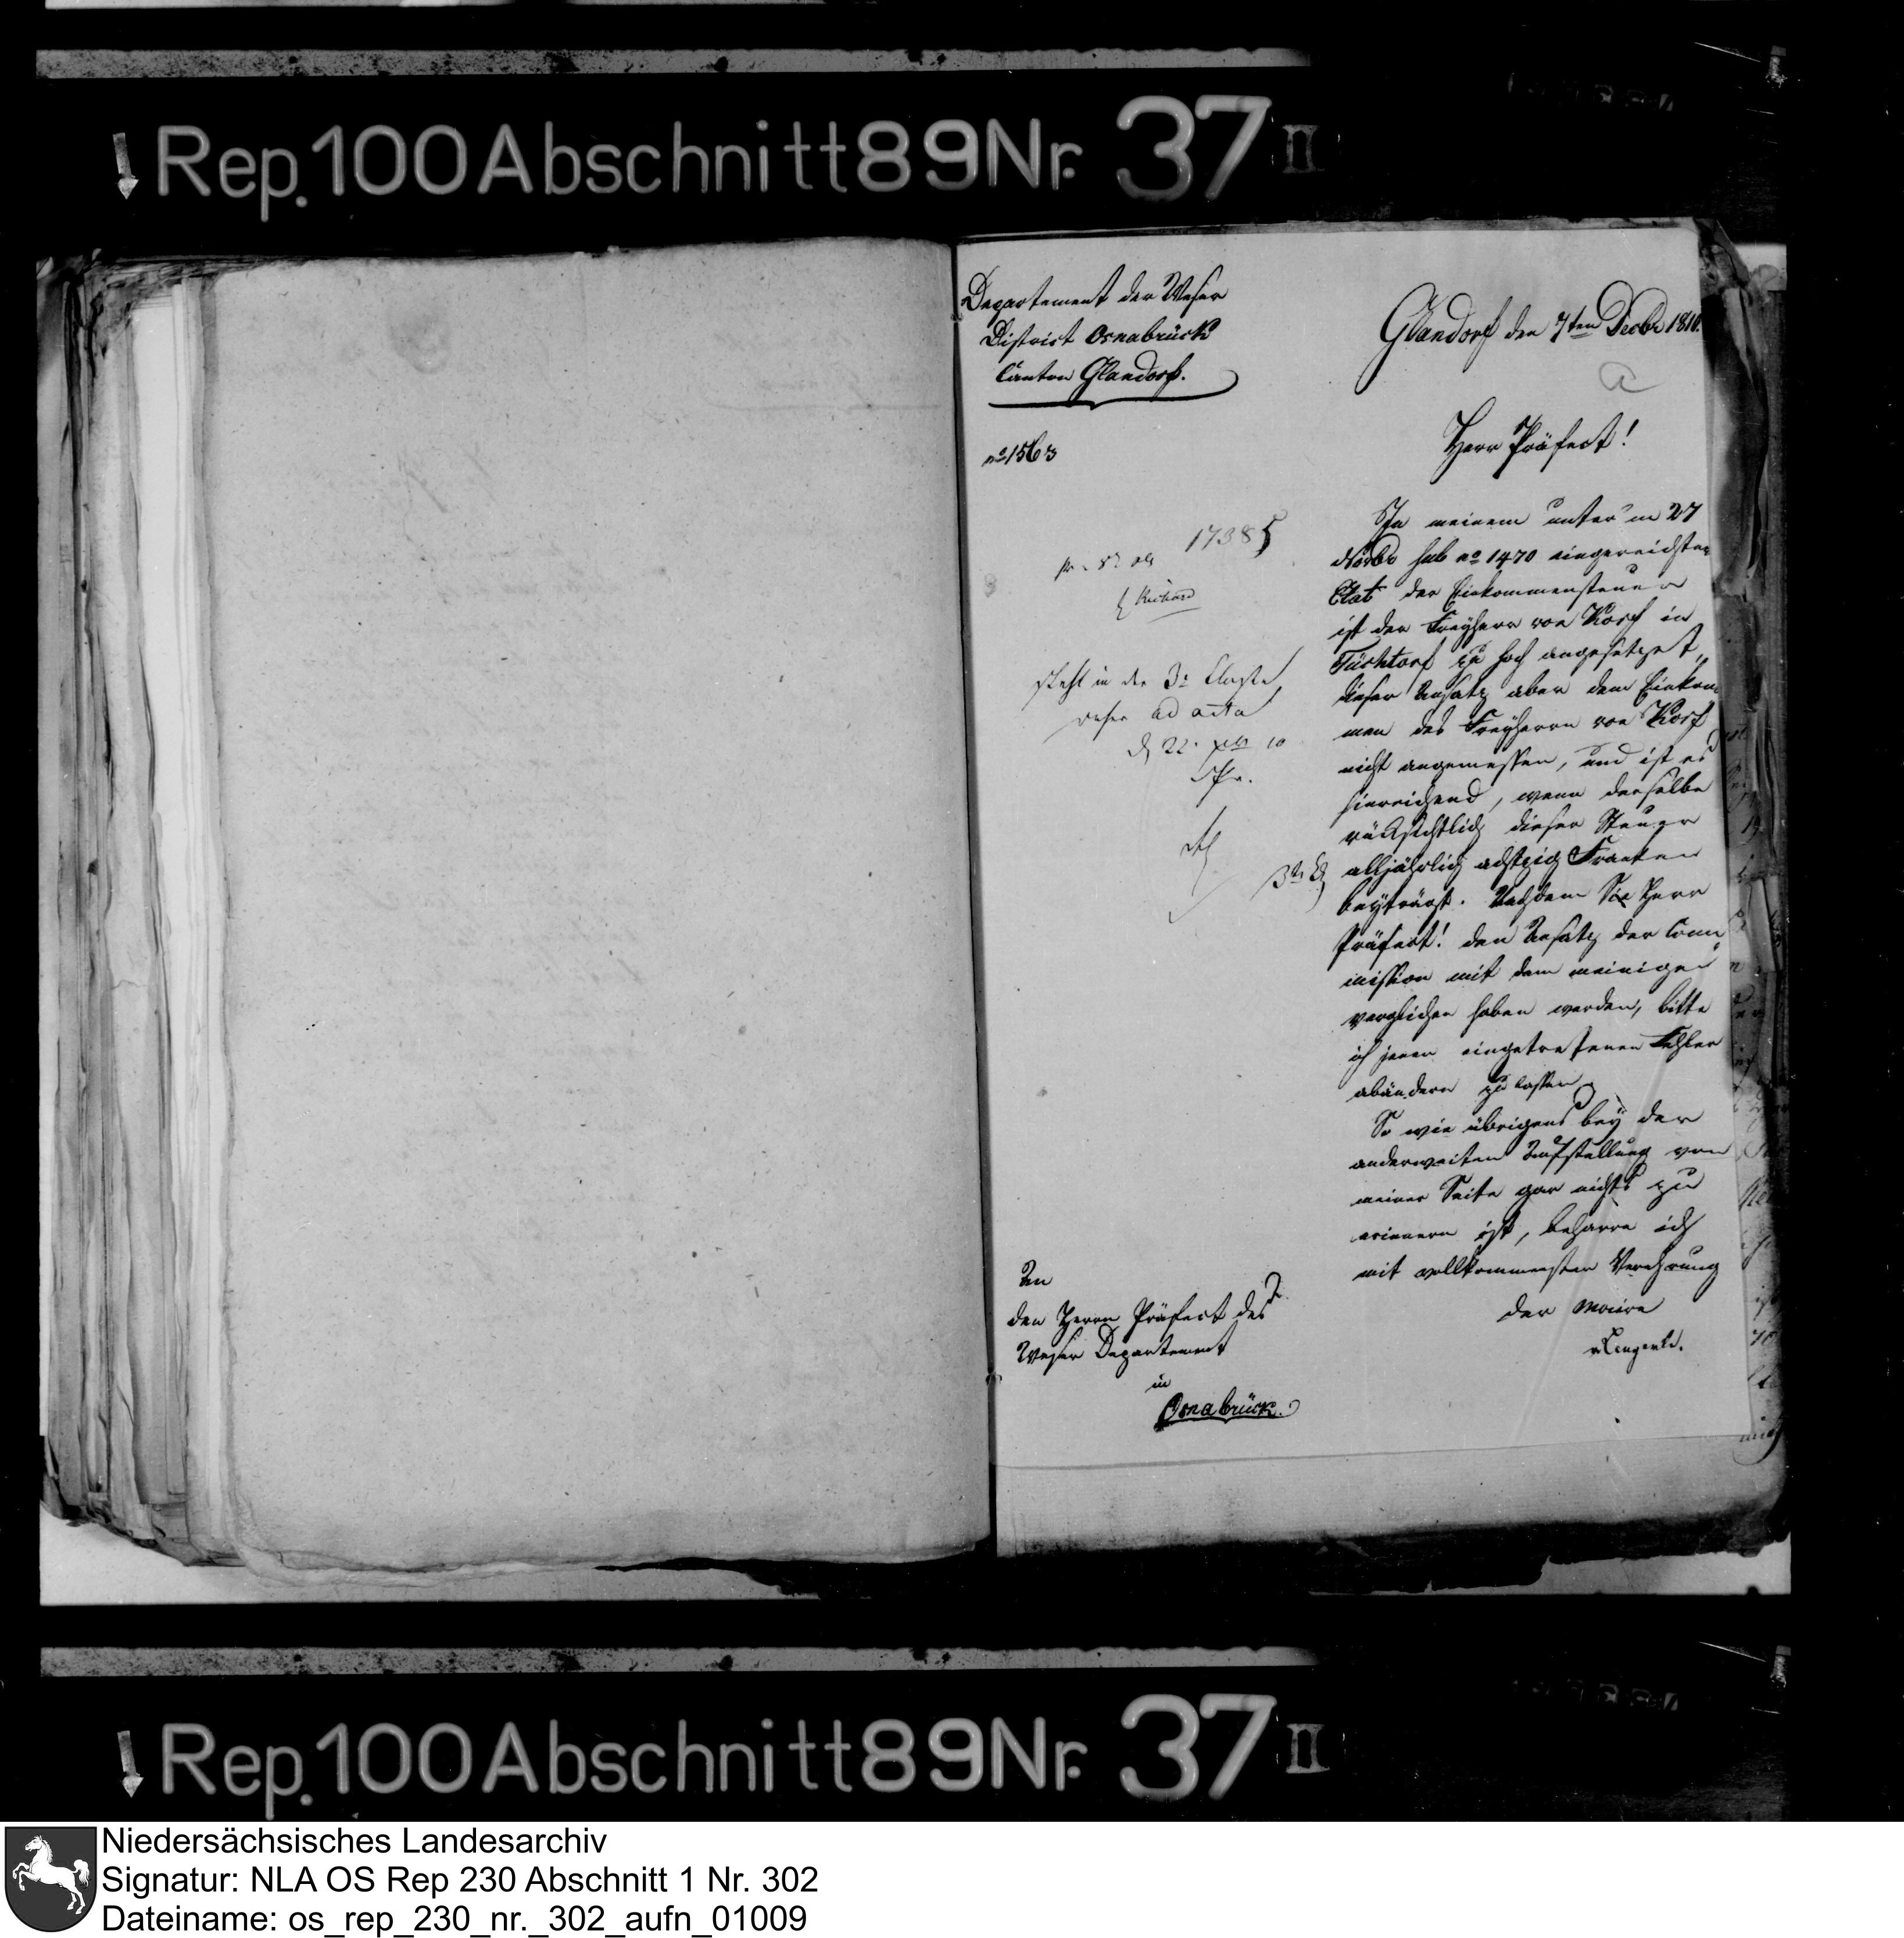 Rep. 100 Abschnitt 89 Nr. 37 II
Departement der Weser
District Osnabrück
Canton Glandorf.
Glandorf den 7ten Decbr 1810.
a
no 1563
Herr Präfect!
17385
In meinem unter'm 27
Novbr sub no 1470 eingereichten
Etat der Einkommensteuer
ist der Freyherr von Korf in
Füchtorf zu hoch angesetzet,
dieser Ansatz aber dem Einkom
men des Freyherrn von Korf
nicht angemessen, und ist es
hinreichend, wenn derselbe
rücksichtlich dieser Steuer
alljährlich achtzig Franken
beyträgt. Nachdem Sie Herr
Präfect! den Ansatz der Com
mission mit dem meinigen
verglichen haben werden, bitte
ich jenen eingetretenen Fehler
abändern zu lassen.
So wie übrigens bey der
anderweiten Aufstellung von
meiner Seite gar nichts zu
erinnern ist, beharre ich
mit vollkommenster Verehrung
der Maire
steht in der 3n Classe
ad acta
An
den Herrn Präfect des
Weser Departement
in
Osnabrück.
Rep. 100 Abschnitt 89 Nr. 37 II
Niedersächsisches Landesarchiv
Signatur: NLA OS Rep 230 Abschnitt 1 Nr. 302
Dateiname: os_rep_230_nr._302_aufn_01009